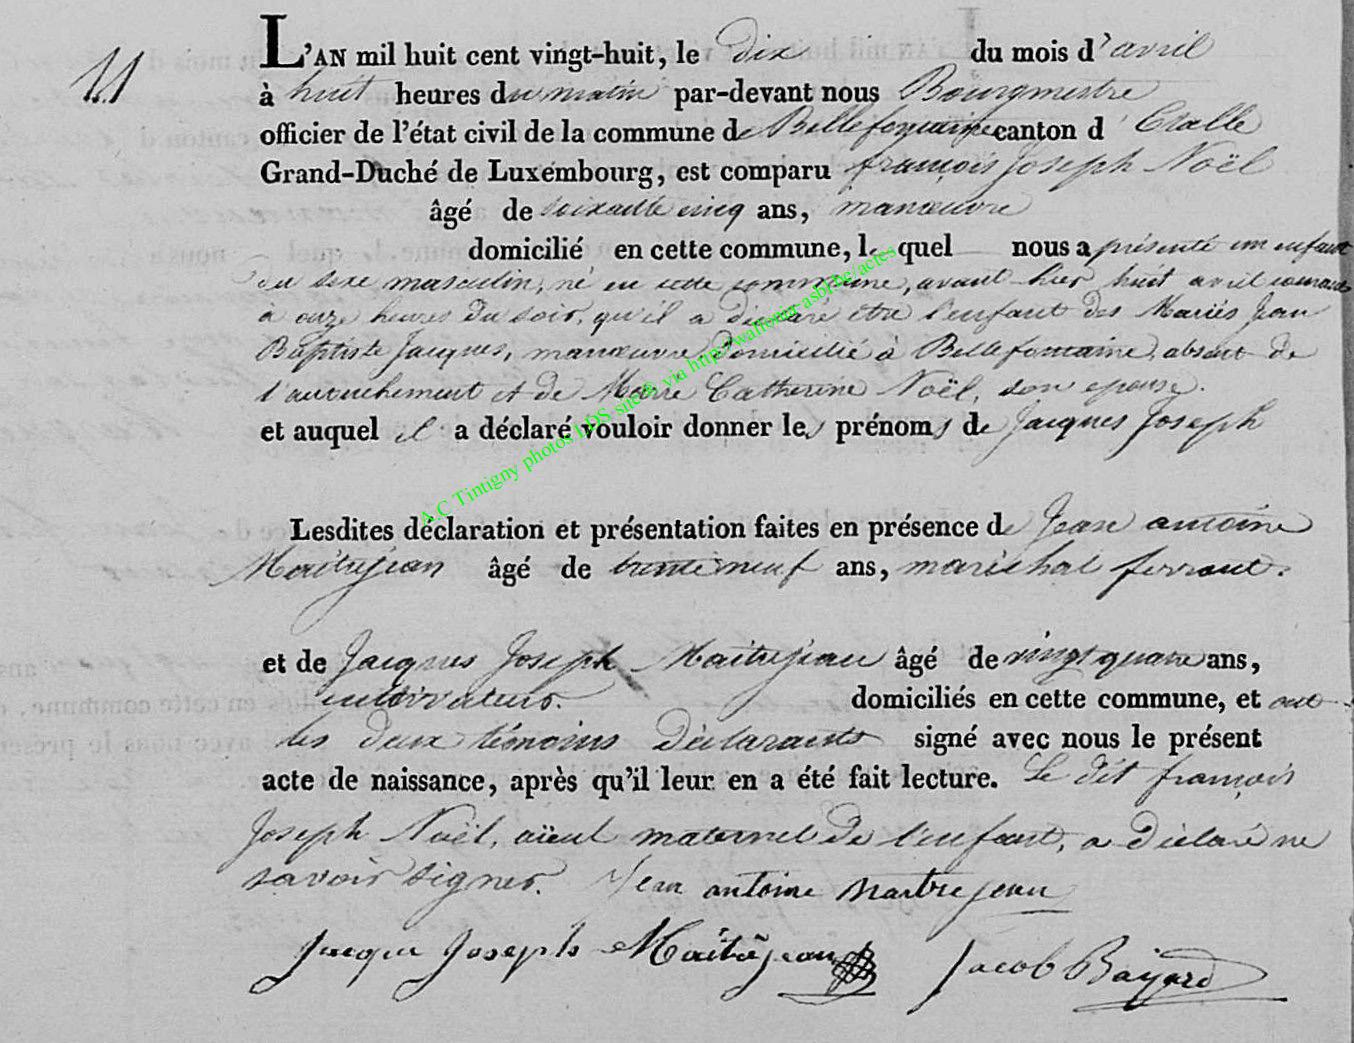 11
L'AN mil huit cent vingt-huit, le dix du mois d'avril
à huit heures du matin par-devant nous Bourgmestre
officier de l'état civil de la commune de Bellefontaine canton d'Etalle
Grand-Duché de Luxembourg, est comparu françois Joseph Noël
âgé de soixante cinq ans, manœuvre
domicilié en cette commune, le quel nous a présenté un enfant
du sexe masculin, né en cette commune, avant-hier huit avril courant
a onze heures du soir, qu'il a déclaré être l'enfant des Mariés Jean
Baptiste Jacques, manœuvre domicilié à Bellefontaine, absent de
l'accouchement et de Marie Catherine Noël, son epouse.
et auquel il a déclaré vouloir donner les prénoms de Jacques Joseph
Lesdites déclaration et présentation faites en présence de Jean antoine
Maitrejean âgé de trente neuf ans, maréchal ferrant.
et de Jacques Joseph Maitrejean âgé de vingt quatre ans,
cultivateur. domiciliés en cette commune, et ont
les deux témoins déclarants signé avec nous le présent
acte de naissance, après qu'il leur en a été fait lecture. Le dit françois
Joseph Noël, aïeul maternel de l'enfant, a déclaré ne
savoir signer. Jean antoine Maitrejean
Jacque Joseph Maitrejean Jacob Bayard
A.C Tintigny photos LDS site © via http://wallonia-asbl.be/actes